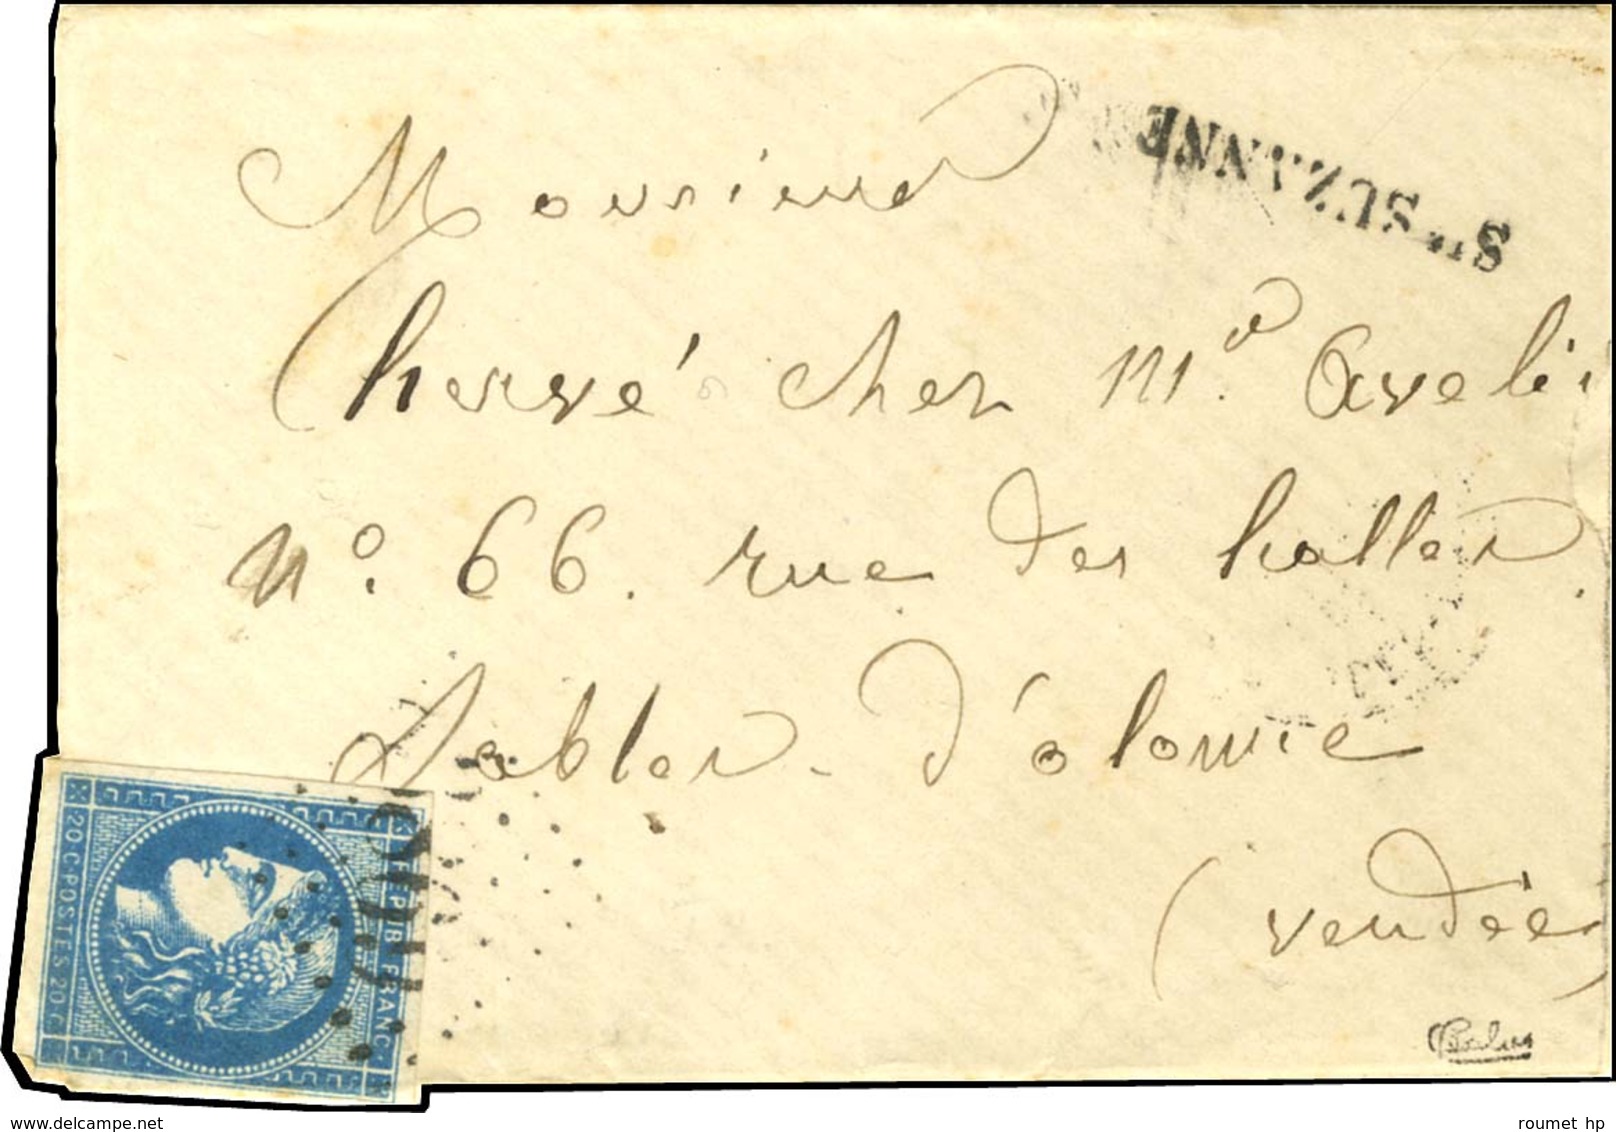 Monsieur
Hervé chez Md Aveli
No. 66. rue des halles.
Sables - d'olonne
(vendée)
Ste SUZANNE
REPUB FRANC.
20 C POSTES 20 C
Calves
delcampe.net
roumet hp